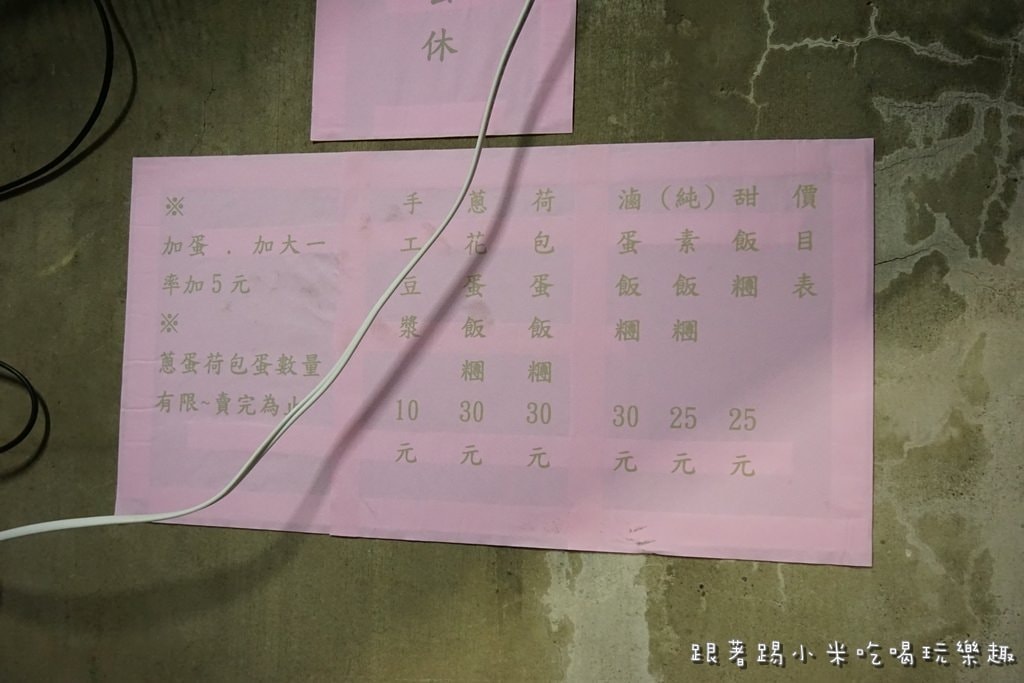 休
價目表
甜飯糰25元
(純)素飯糰25元
滷蛋飯糰30元
荷包蛋飯糰30元
蔥花蛋飯糰30元
手工豆漿10元
※
加蛋．加大一
率加5元
※
蔥蛋荷包蛋數量
有限~賣完為止
跟著踢小米吃喝玩樂趣